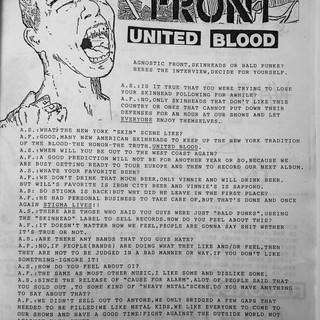 FRONT
UNITED BLOOD
AGNOSTIC FRONT,SKINHEADS OR BALD PUNKS?
HERES THE INTERVIEW,DECIDE FOR YOURSELF.
A.S.:IS IT TRUE THAT YOU WERE TRYING TO LOSE
YOUR SKINHEAD FOLLOWING FOR AWHILE?
A.F.:NO,ONLY SKINHEADS THAT DON'T LIKE THIS
COUNTRY OR ONES THAT CANNOT PUT DOWN THEIR
DEFENSES FOR AN HOUR AT OUR SHOWS AND LET
EVERYONE ENJOY THEMSELVES.
A.S.:WHATS THE NEW YORK "SKIN" SCENE LIKE?
A.F.:GOOD,MANY NEW AMERICAN SKINHEADS TO KEEP UP THE NEW YORK TRADITION
OF THE BLOOD-THE HONOR-THE TRUTH.UNITED BLOOD.
A.S.:WHEN WILL YOU BE OUT TO THE WEST COAST AGAIN?
A.F.:A GOOD PREDICTION WILL NOT BE FOR ANOTHER YEAR OR SO,BECAUSE WE
ARE BUSY GETTING READY TO TOUR EUROPE AND THEN TO RECORD OUR NEXT ALBUM.
A.S.:WHATS YOUR FAVORITE BEER?
A.F.:WE DON'T DRINK THAT MUCH BEER,ONLY VINNIE AND WILL DRINK BEER
BUT WILL'S FAVORITE IS IRON CITY BEER AND VINNIE'S IS SAPPORO.
A.S: SO STIGMA IS BACK!BUT WHY DID HE LEAVE IN THE FIRST PLACE?
A.F.:HE HAD PERSONAL BUSINESS TO TAKE CARE OF,BUT THAT'S DONE AND ONCE
AGAIN STIGMA LIVES!!
A.S.:THERE ARE THOSE WHO SAID YOU GUYS WERE JUST "BALD PUNKS",SEEING
THE "SKINHEAD" LABEL TO SELL RECORDS,HOW DO YOU FEEL ABOUT THIS?
A.F.:IT DOESN'T MATTER HOW WE FEEL,PEOPLE ARE GONNA SAY SHIT WETHER
IT'S TRUE OR NOT.
A.S:ARE THERE ANY BANDS THAT YOU GUYS HATE?
A.F.:NO,IF PEOPLE(BANDS) ARE DOING WHAT THEY LIKE AND/OR FEEL,THEN
THEY ARE NOT TO BE JUDGED IN A BAD MANNER OR WAY.IF YOU DON'T LIKE
SOMETHING-IGNORE IT!
A.S:HOW DO YOU FEEL ABOUT OI?
A.F.:THE SAME AS MOST OTHER MUSIC,I LIKE SOME AND DISLIKE SOME.
A.S:SINCE THE RELEASE OF "CAUSE FOR ALARM",ALOT OF PEOPLE SAID THAT
YOU SOLD OUT ,TO SOME KIND OF "HEAVY METAL"SCENE.DO YOU HAVE ANYTHING
TO SAY ABOUT THAT?
A.F:WE DIDN'T SELL OUT TO ANYONE.WE ONLY BRIDGED A FEW GAPS THAT
NEEDED TO BE FILLED!WE LIKE METAL KIDS,WE LIKE EVERYONE TO COME TO
OUR SHOWS AND HAVE A GOOD TIME/FIGHT AGAINST THE OUTSIDE WORLD NOT